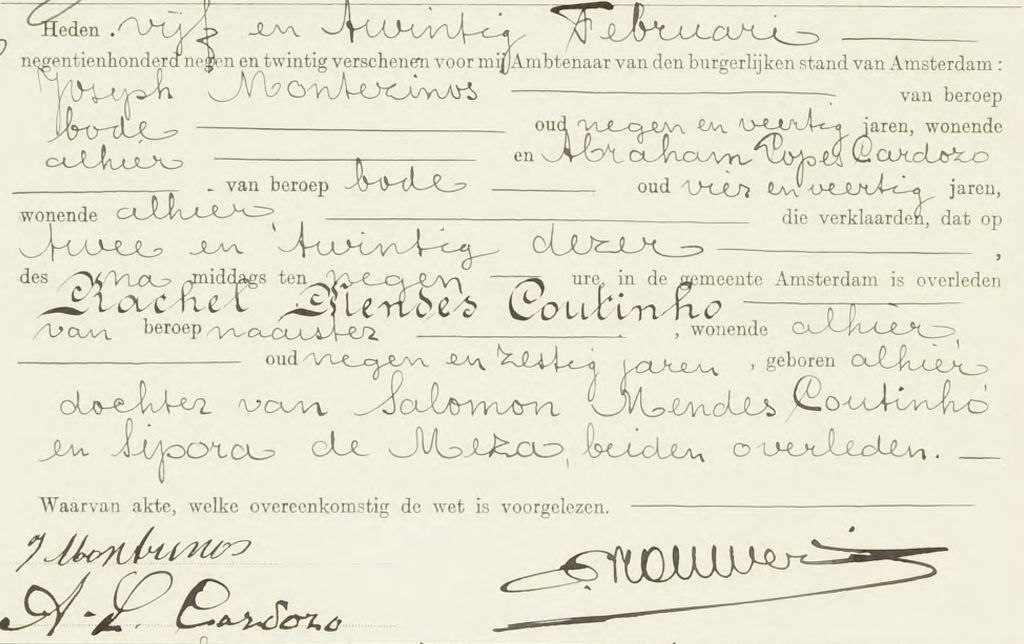 Heden . vijf en twintig Februari
negentienhonderd negen en twintig verschenen voor mij Ambtenaar van den burgerlijken stand van Amsterdam :
Joseph Montezinos van beroep
bode oud negen en veertig jaren, wonende
alhier en Abraham Lopes Cardozo
van beroep bode oud vier en veertig jaren,
wonende alhier, die verklaarden, dat op
twee en twintig dezer ,
des na middags ten negen ure, in de gemeente Amsterdam is overleden
Rachel Mendes Coutinho
van beroep naaister , wonende alhier,
oud negen en zestig jaren , geboren alhier
dochter van Salomon Mendes Coutinho
en Sipora de Meza, beiden overleden.
Waarvan akte, welke overeenkomstig de wet is voorgelezen.
J Montezinos
A. L. Cardozo